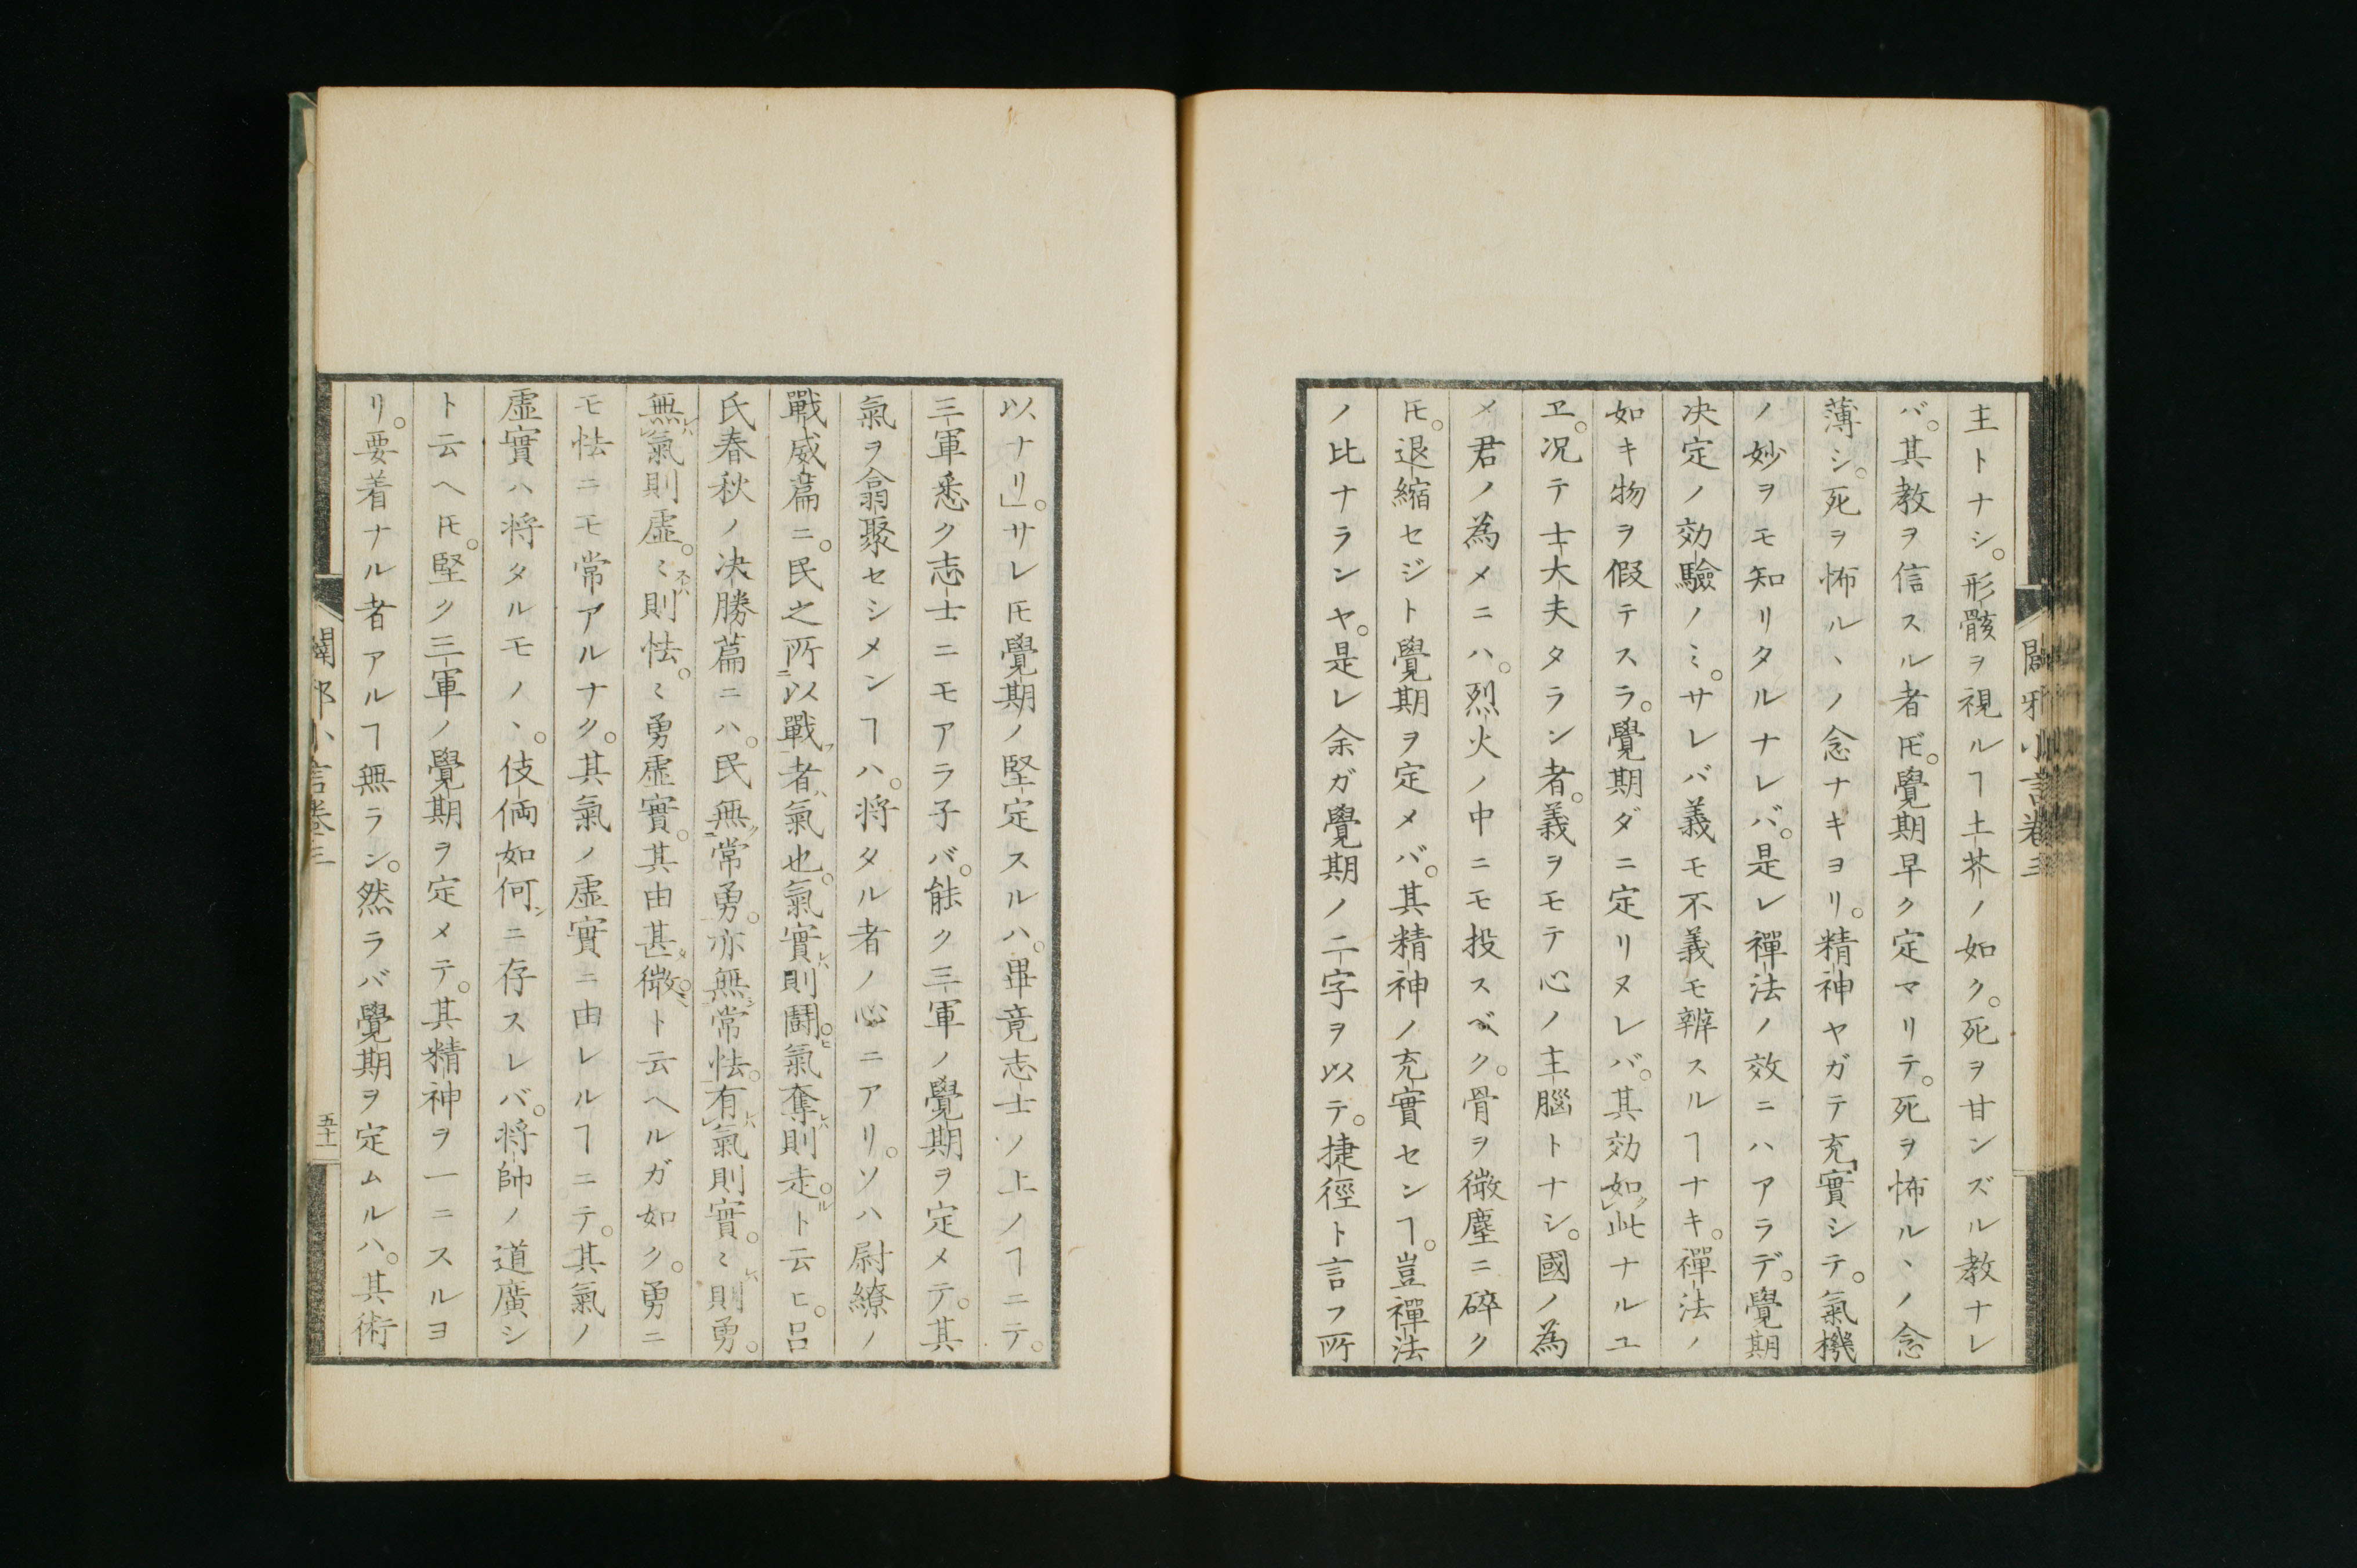 闢邪小言卷三
主トナシ。形骸ヲ視ルヿ土芥ノ如ク。死ヲ甘ンズル教ナレ
バ。其教ヲ信スル者𪜈。覺期早ク定マリテ。死ヲ怖ルヽノ念
薄シ。死ヲ怖ルヽノ念ナキヨリ。精神ヤガテ充實シテ。氣機
ノ妙ヲモ知リタルナレバ。是レ禪法ノ效ニハアラデ。覺期
决定ノ効驗ノミ。サレバ義モ不義モ辨スルヿナキ。禪法ノ
如キ物ヲ假テスラ。覺期ダニ定リヌレバ。其効如レ此クナルユ
ヱ。况テ士大夫タラン者。義ヲモテ心ノ主腦トナシ。國ノ為
メ君ノ為メニハ。烈火ノ中ニモ投スベク。骨ヲ微塵ニ碎ク
𪜈。退縮セジト覺期ヲ定メバ。其精神ノ充實センヿ。豈禪法
ノ比ナランヤ。是レ余ガ覺期ノ二字ヲ以テ。捷徑ト言フ所
以ナリ」。サレ𪜈覺期ノ堅定スルハ。畢竟志士ノ上ノヿニテ。
三軍悉ク志士ニモアラ子バ。能ク三軍ノ覺期ヲ定メテ。其
氣ヲ翕聚セシメンヿハ。将タル者ノ心ニアリ。ソハ尉繚ノ
戰威篇ニ。民之所ニ以戰フ一者ハ氣也。氣實レハ則鬪ヒ。氣奪レハ則走ルト云ヒ。呂
氏春秋ノ决勝篇ニハ。民無ク二常勇一。亦無シ二常怯一。有レハレ氣則實。〻レハ則勇。
無レハレ氣則虛。〻スレハ則怯。〻勇虛實。其由甚タ微ミト云ヘルガ如ク。勇ニ
モ怯ニモ常アルナク。其氣ノ虛實ニ由レルヿニテ。其氣ノ
虛實ハ将タルモノヽ。伎倆如何ンニ存スレバ。将帥ノ道廣シ
ト云ヘ𪜈。堅ク三軍ノ覺期ヲ定メテ。其精神ヲ一ニスルヨ
リ。要着ナル者アルヿ無ラン。然ラバ覺期ヲ定ムルハ。其術
闢邪小言卷三
五十一